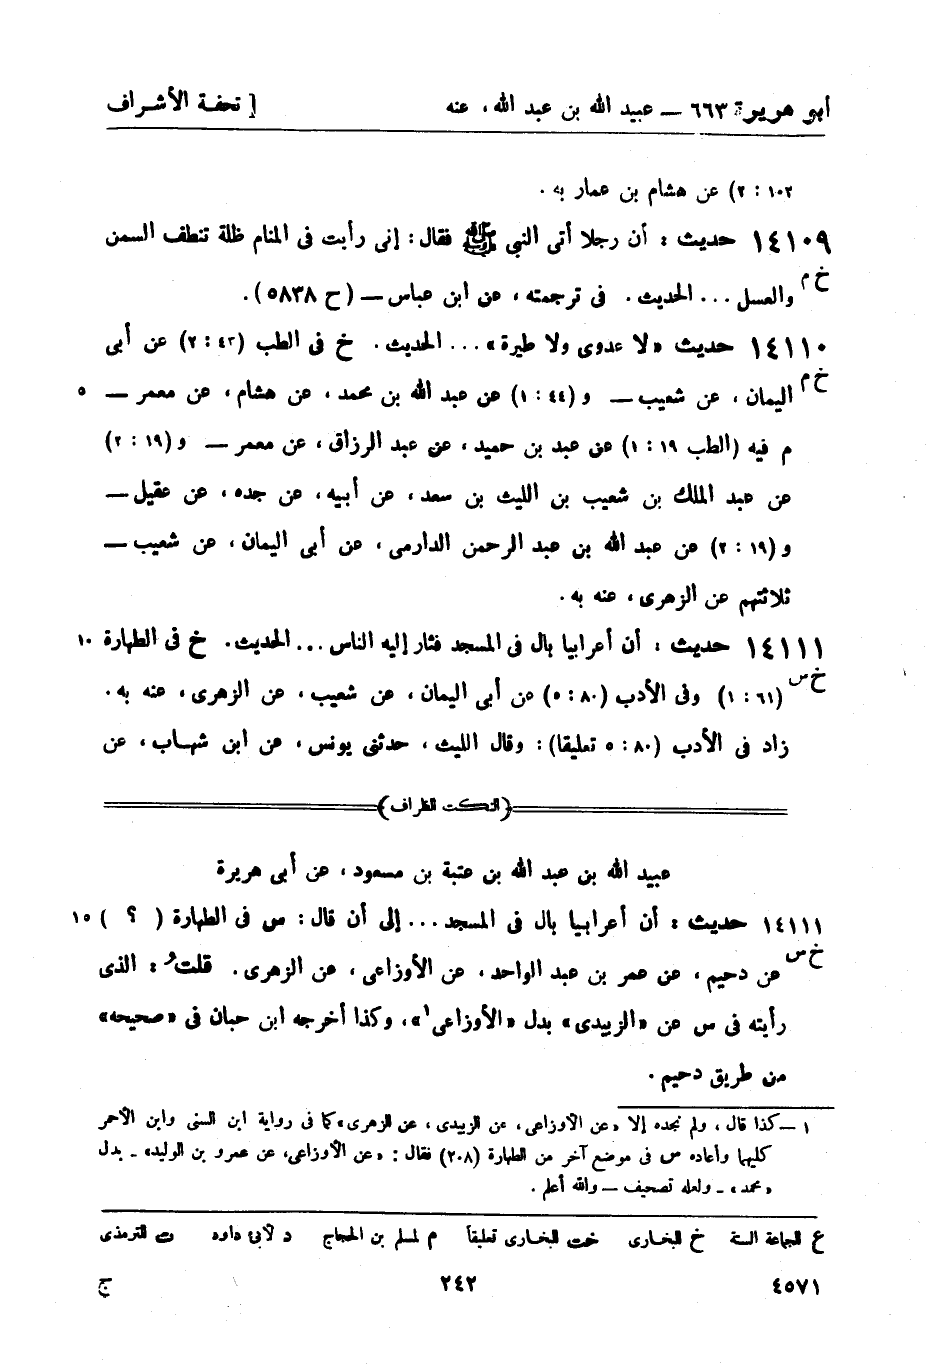 أبو هريرة ٦٦٣ — عبيد الله بن عبد الله، عنه [ تحفة الأشراف
١٠٢ : ٢) عن هشام بن عمار به .
١٤١٠٩ حديث : أن رجلا أتى النبي ﷺ فقال: إنى رأيت فى المنام ظلة تنطف السمن
خ م والعسل ... الحديث . فى ترجمته ، عن ابن عباس — (ح ٥٨٣٨).
١٤١١٠ حديث «لا عدوى ولا طيرة» ... الحديث . خ فى الطب (٤٣ : ٢) عن أبى
خ م اليمان ، عن شعيب — و (٤٤ : ١) عن عبد الله بن محمد ، عن هشام ، عن معمر — ٥
م فيه (الطب ١٩ : ١) عن عبد بن حميد ، عن عبد الرزاق ، عن معمر — و (١٩ : ٢)
عن عبد الملك بن شعيب بن الليث بن سعد، عن أبيه ، عن جده ، عن عقيل —
و (١٩ : ٢) عن عبد الله بن عبد الرحمن الدارمى ، عن أبى اليمان ، عن شعيب —
ثلاثتهم عن الزهرى ، عنه به .
١٤١١١ حديث : أن أعرابيا بال فى المسجد فثار إليه الناس ... الحديث . خ فى الطهارة ١٠
خ س (٦١ : ١) وفى الأدب (٨٠ : ٥) عن أبى اليمان ، عن شعيب ، عن الزهرى ، عنه به .
زاد فى الأدب (٨٠ : ٥ تعليقا): وقال الليث ، حدثنى يونس ، عن ابن شهاب ، عن
(النكت الظراف)
عبيد الله بن عبد الله بن عتبة بن مسعود ، عن أبى هريرة
١٤١١١ حديث : أن أعرابيا بال فى المسجد ... إلى أن قال : س فى الطهارة ( ؟ ) ١٥
خ س عن دحيم ، عن عمر بن عبد الواحد ، عن الأوزاعى ، عن الزهرى . قلت : الذى
رأيته فى س عن «الزبيدى» بدل «الأوزاعى١»، وكذا أخرجه ابن حبان فى «صحيحه»
من طريق دحيم .
١ — كذا قال ، ولم نجده إلا «عن الأوزاعى ، عن الزبيدى ، عن الزهرى» كما فى رواية ابن السنى وابن الأحمر
كليهما وأعاده س فى موضع آخر من الطهارة (٢٠٨) فقال : «عن الأوزاعى، عن عمرو بن الوليد» – بدل
«محمد» – ولعله تصحيف — والله أعلم .
ع للجماعة الستة خ للبخارى خت للبخارى تعليقاً م لمسلم بن الحجاج د لأبى داود ت للترمذى
٤٥٧١ ٢٤٢ ج